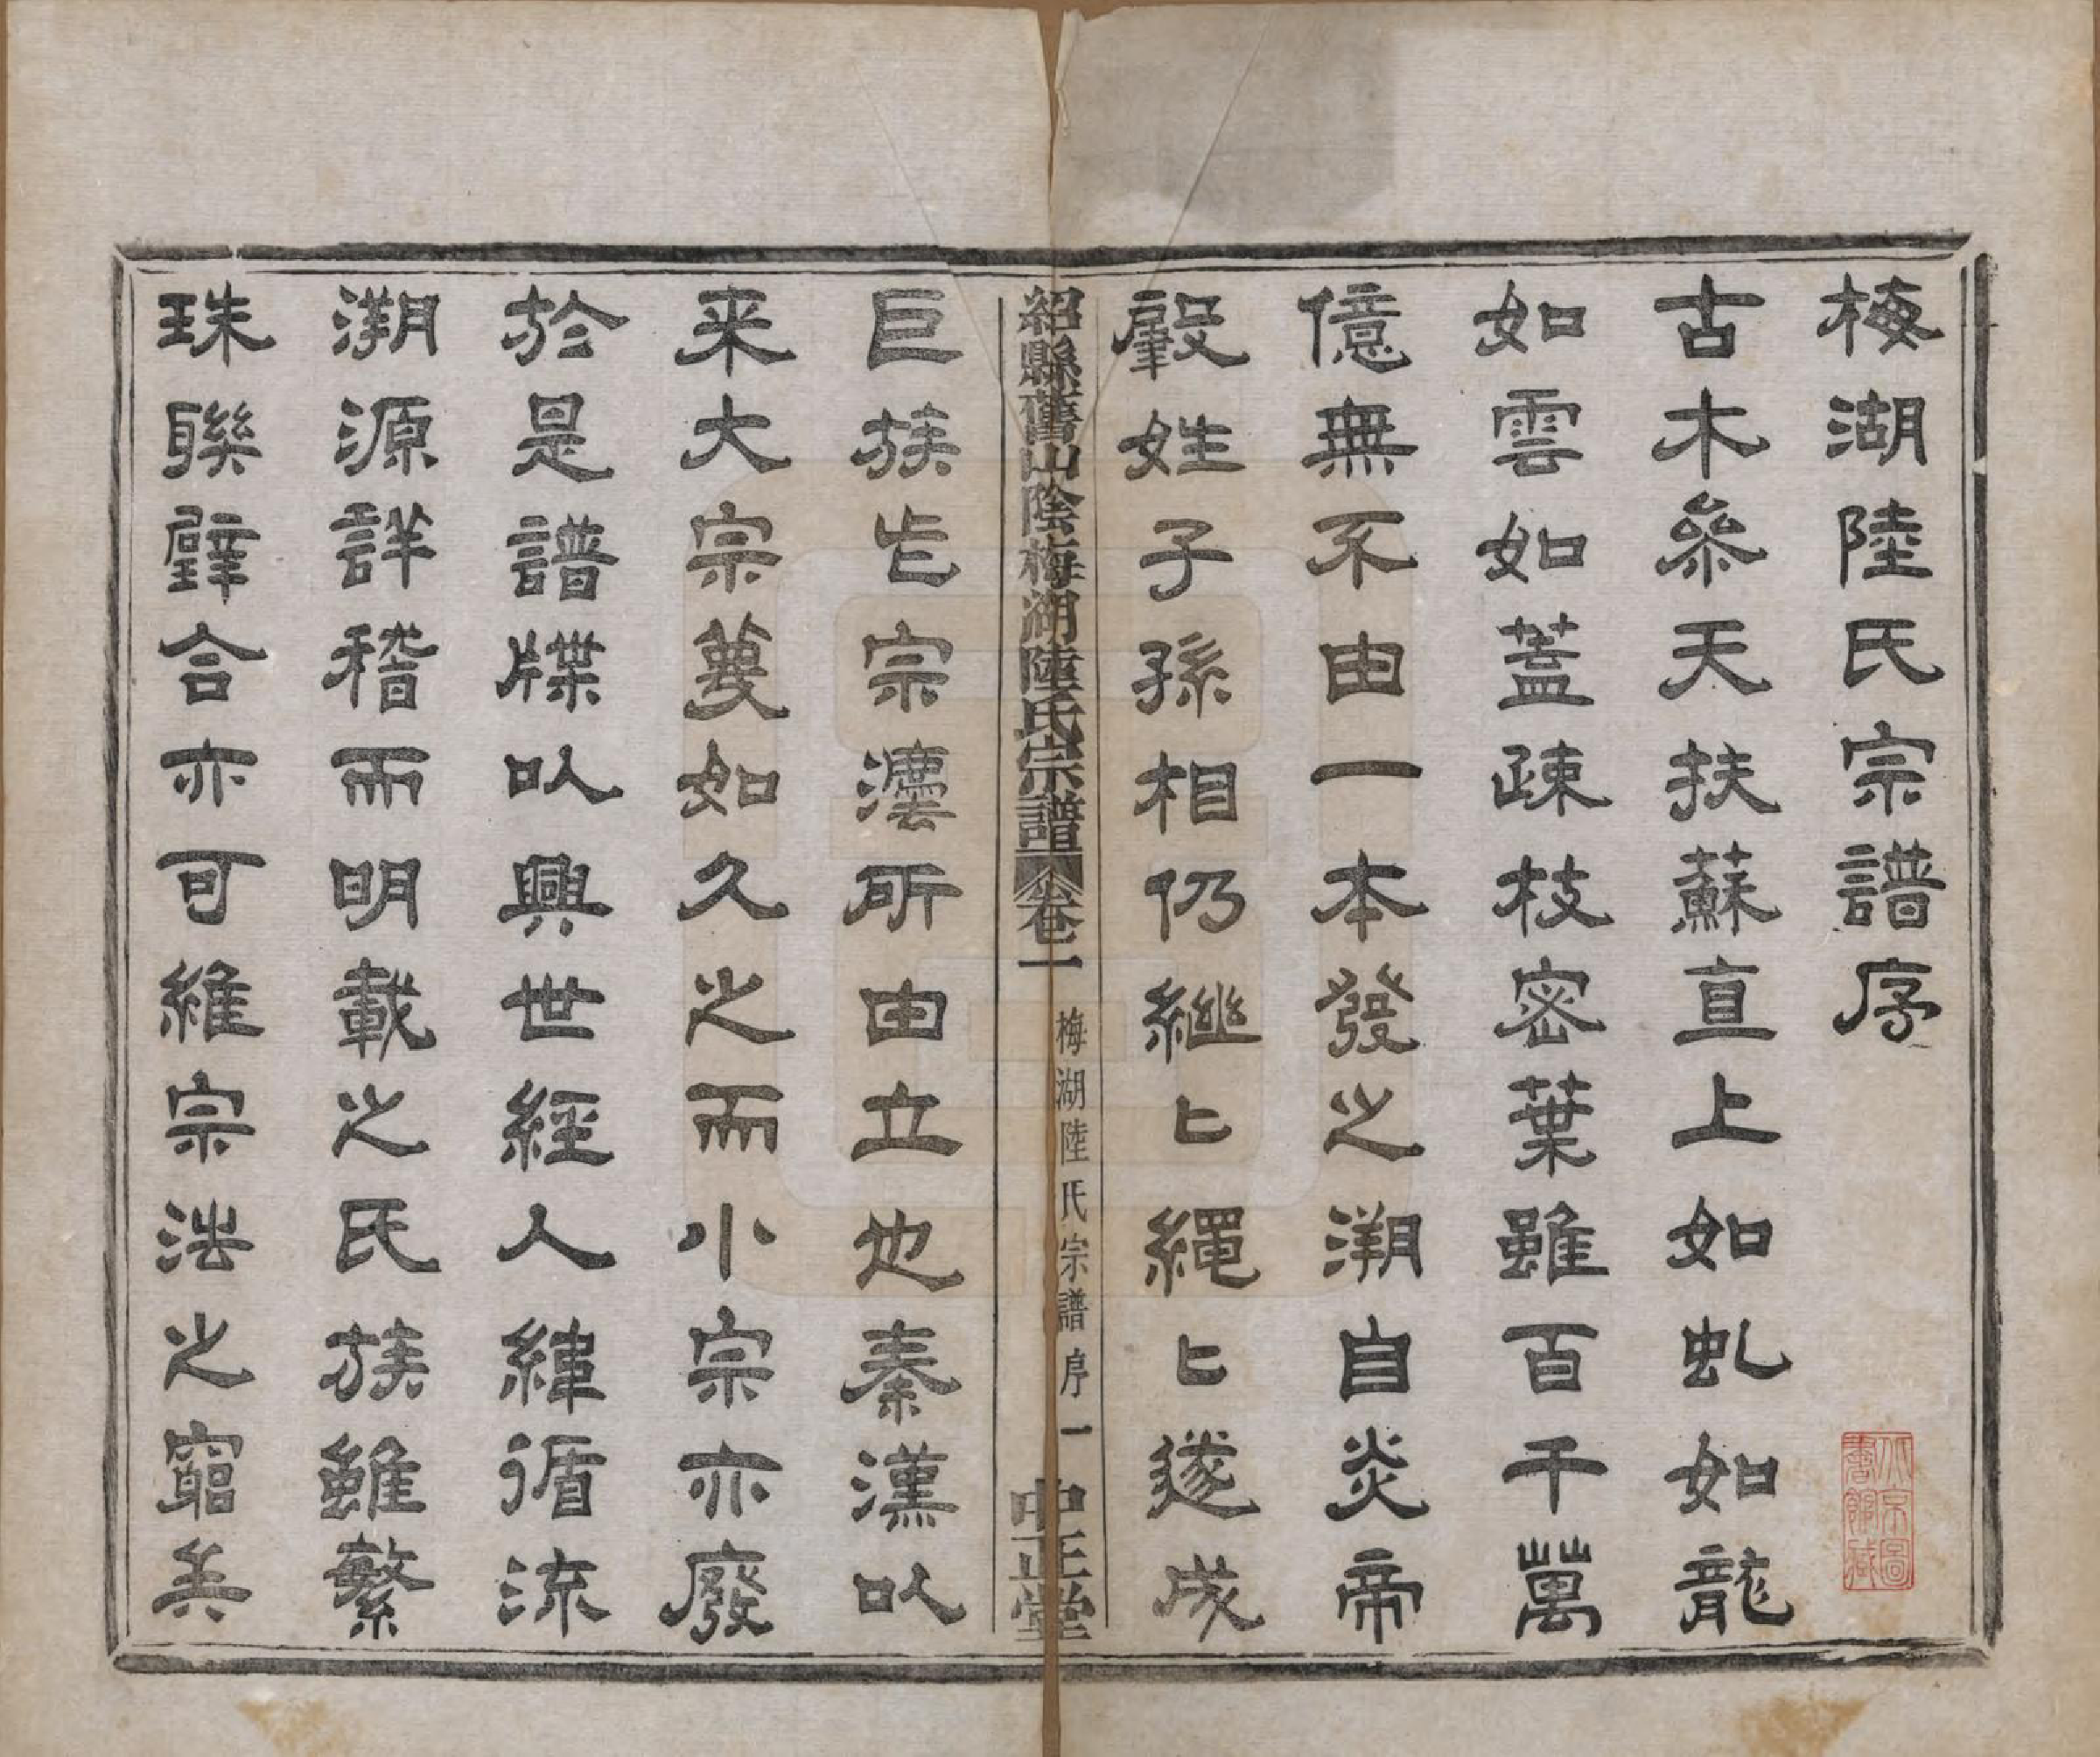 梅湖陸氏宗譜序
古木叅天扶蘇直上如虬如龍
如雲如蓋疎枝密葉雖百千萬
億無不由一本發之溯自炎帝
肇姓子孫相仍繼〻繩〻遂成
紹縣舊山陰梅湖陸氏宗譜 卷一 梅湖陸氏宗譜序 一 中正堂
巨族此宗法所由立也秦漢以
来大宗蔑如久之而小宗亦廢
於是譜牒以興世經人緯循流
溯源詳稽而明載之氏族雖繁
珠聯璧合亦可維宗法之窮矣
北京圖書館藏